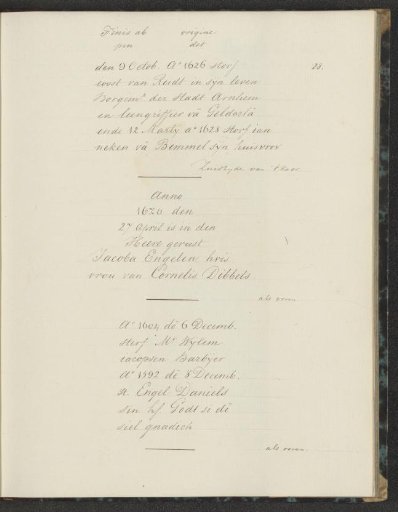 Finis ab origine
pen det
den 9 Octob. Aº 1626 sterf 23.
Joost van Reidt in syn leven
Borgemr der Stadt Arnhem
en leengriffier vā Gelderlā
ende 12 Marty aº 1628 sterf ian
neken vā Bemmel syn huisvrov
Zuidzyde van 't koor
Anno
1620 den
27 April is in den
Heere gerust
Jacoba Engelen, hvis
vrou van Cornelis Dibbels
als voren
Aº 1604 dē 6 Decemb.
sterf Mr Wylem
iacopsen Barbyer
Aº 1592 dē 8 Decemb.
st. Engel Daniels
syn hf Godt si dē
siel gnadich
als voren.